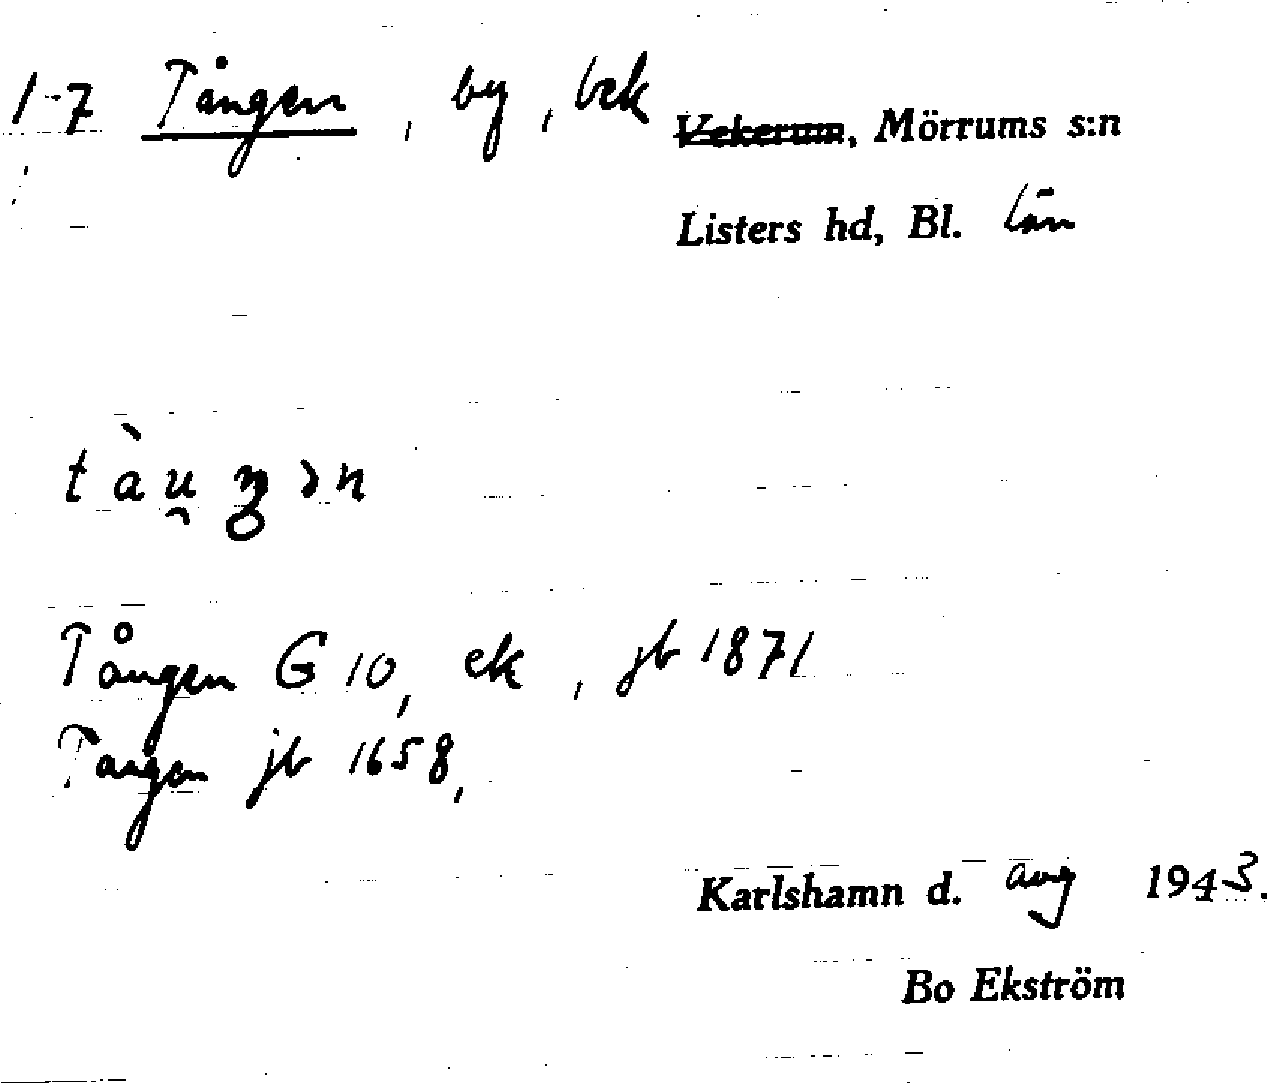 1-7 Tången, by, bek Vekerum, Mörrums s:n
Listers hd, Bl. län
tàu̯ŋən
Tången G 10, ek, jb 1871
Tangen jb 1658,
Karlshamn d. aug 1943.
Bo Ekström